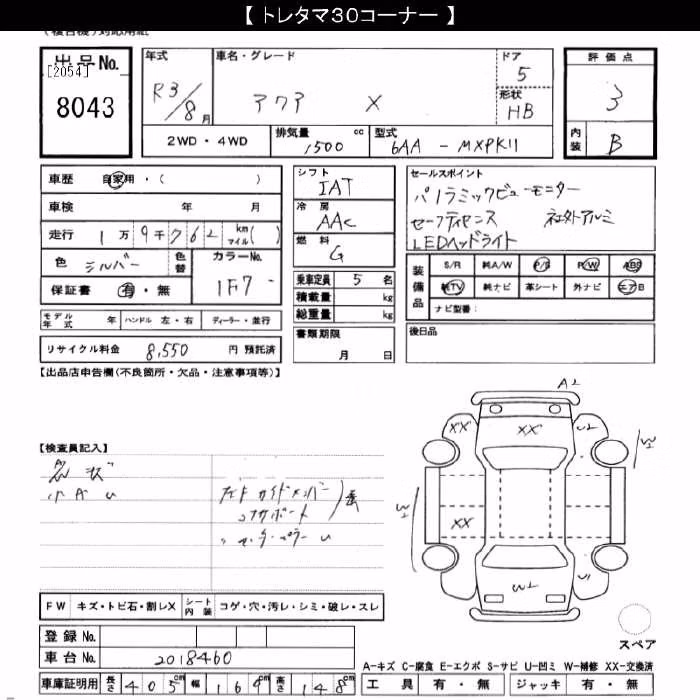 【 トレタマ30コーナー 】
(複合機)対応用紙
出品No.
[2054]
8043
年式
R3/8月
車名・グレード
アクア X
ドア
5
形状
HB
2WD・4WD
排気量 1500 cc
型式 6AA - MXPK11
評価点
3
内装
B
車歴 自家用・( )
車検 年 月
走行 1万9千762 km マイル( )
色 シルバー
色替
カラーNo.
1F7
保証書 有・無
シフト
IAT
冷房
AAC
燃料
G
乗車定員 5 名
積載量 kg
総重量 kg
セールスポイント
パノラミックビューモニター
セーフティセンス 社外アルミ
LEDヘッドライト
装備品
S/R 純A/W P/S P/W ABS
純TV 純ナビ 革シート 外ナビ エアB
ナビ型番:
モデル年式 年 ハンドル 左・右 ディーラー・並行
リサイクル料金 8,550 円 預託済
書類期限
月 日
後日品
【出品店申告欄(不良箇所・欠品・注意事項等)】
【検査員記入】
小A U
左F サイドメンバー
コアサポート
センターピラー U
A2
XX
XX
U2
W2
W2
XX
W2
U1
スペア
FW キズ・トビ石・割レX
シート内装 コゲ・穴・汚レ・シミ・破レ・スレ
登録No.
車台No. 2018460
車庫証明用 長さ 405cm 幅 169cm 高さ 148cm
A-キズ C-腐食 E-エクボ S-サビ U-凹ミ W-補修 XX-交換済
工具 有・無 ジャッキ 有・無